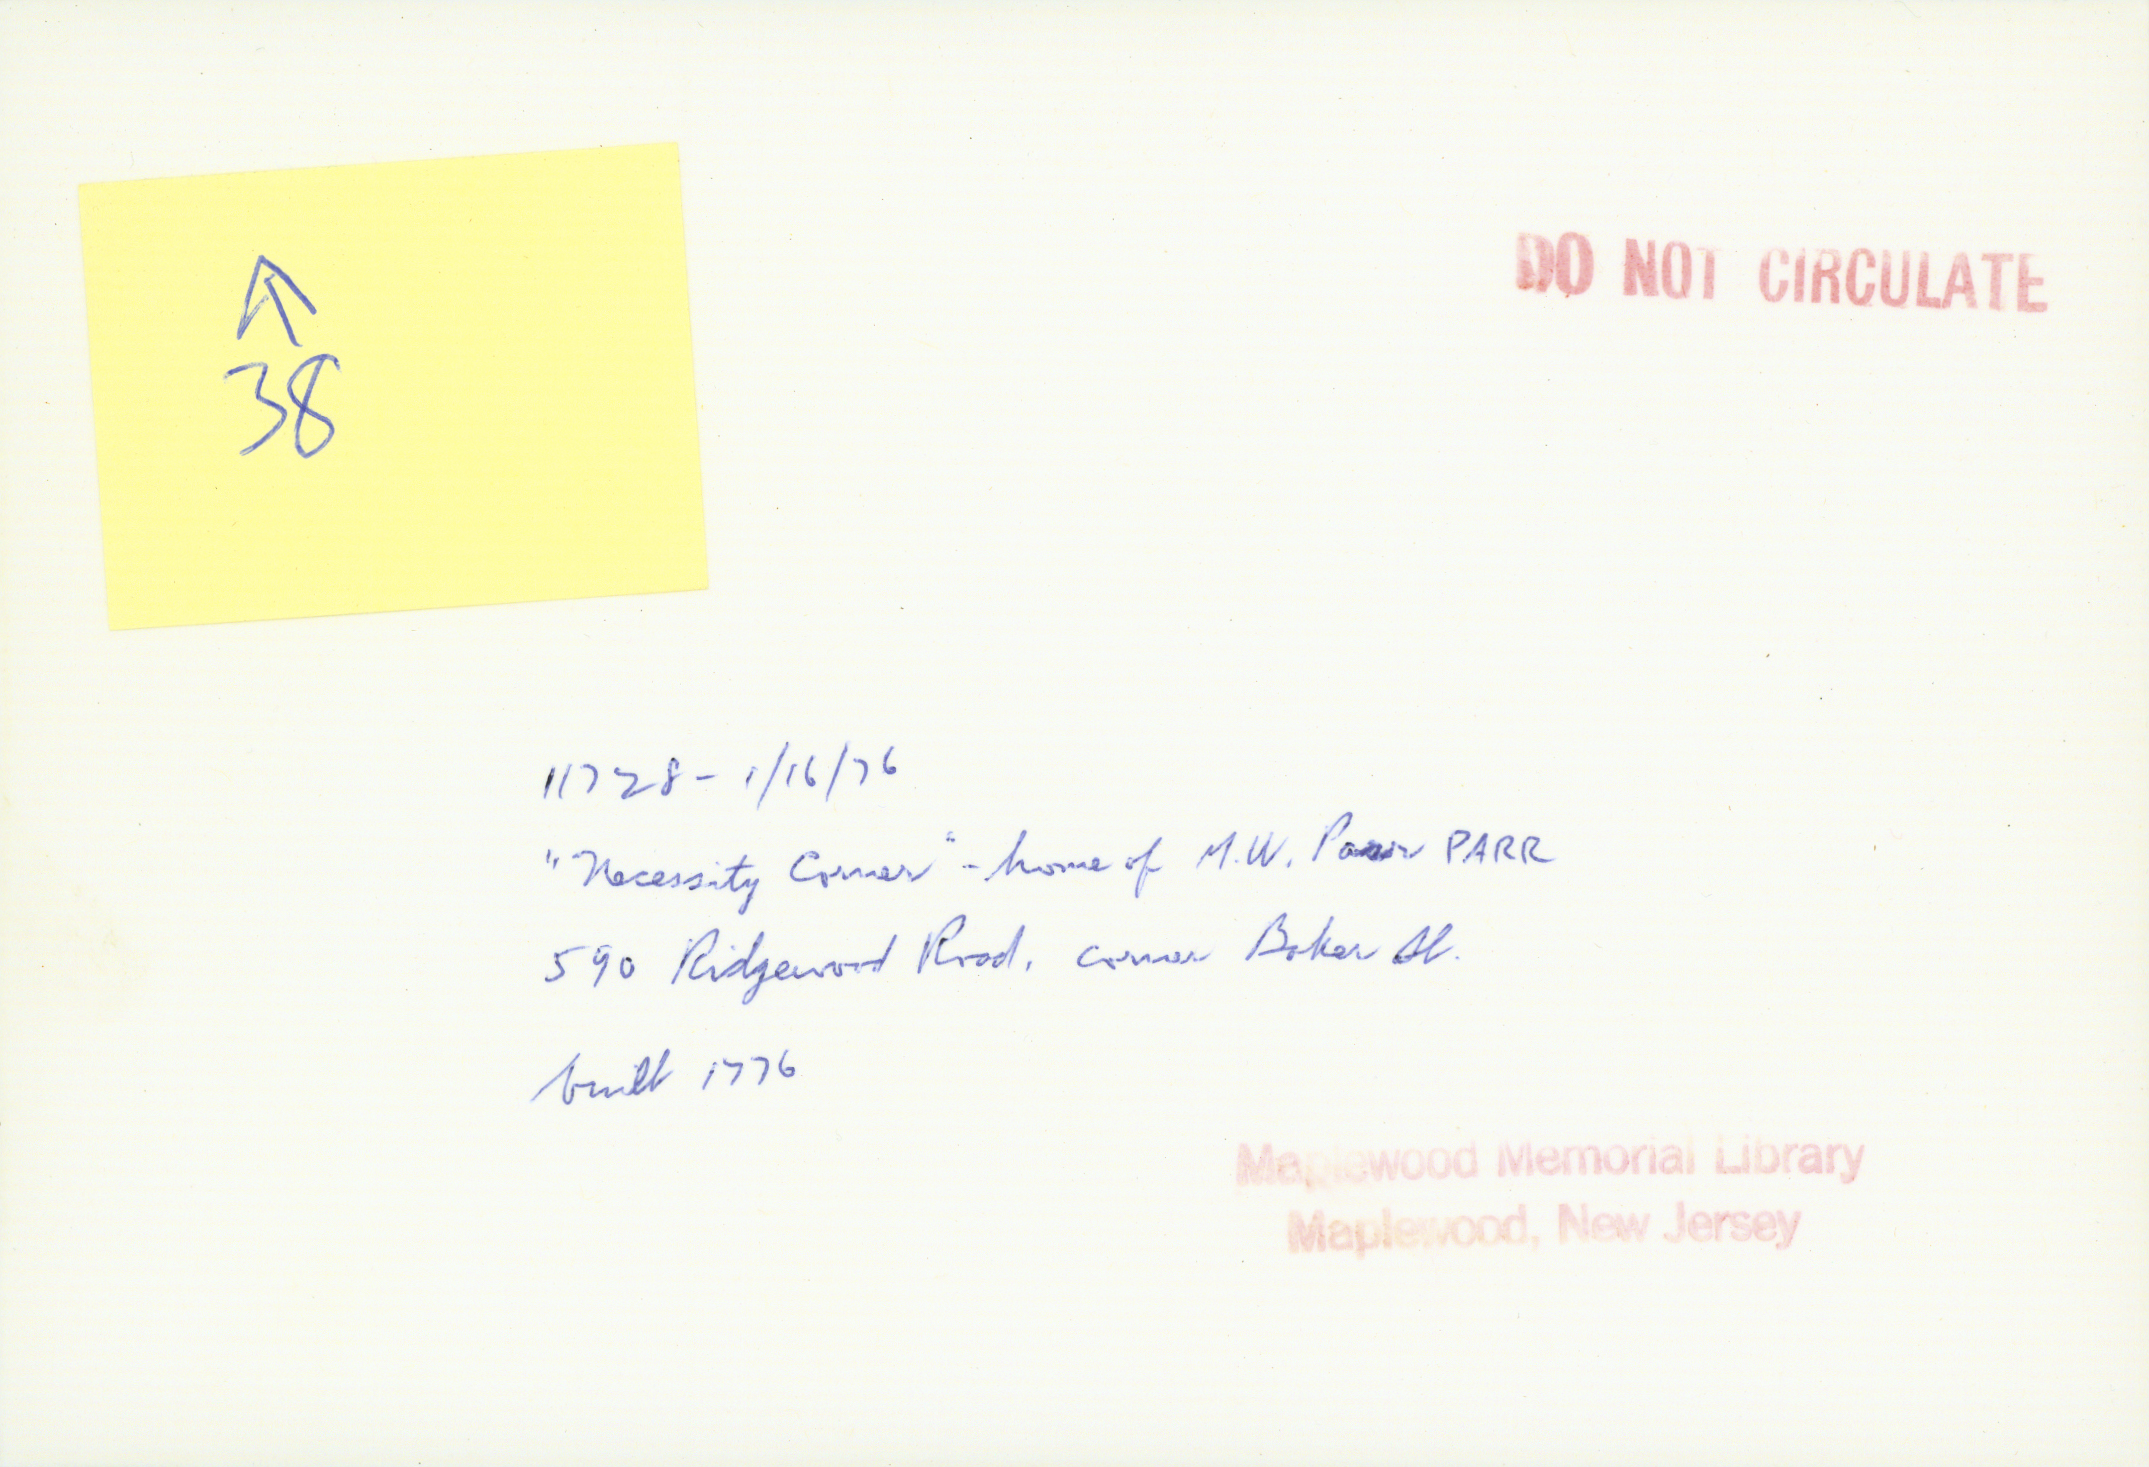 ↑
38
DO NOT CIRCULATE
11728 - 1/16/76
"Necessity Corner" - home of M.W. Parr PARR
590 Ridgewood Road, corner Baker St.
built 1776
Maplewood Memorial Library
Maplewood, New Jersey